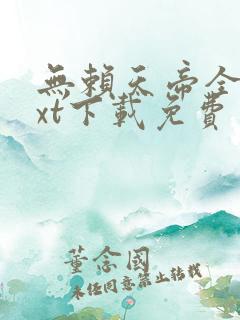 無賴天帝全
xt下載免費
董念國
未经同意禁止转载